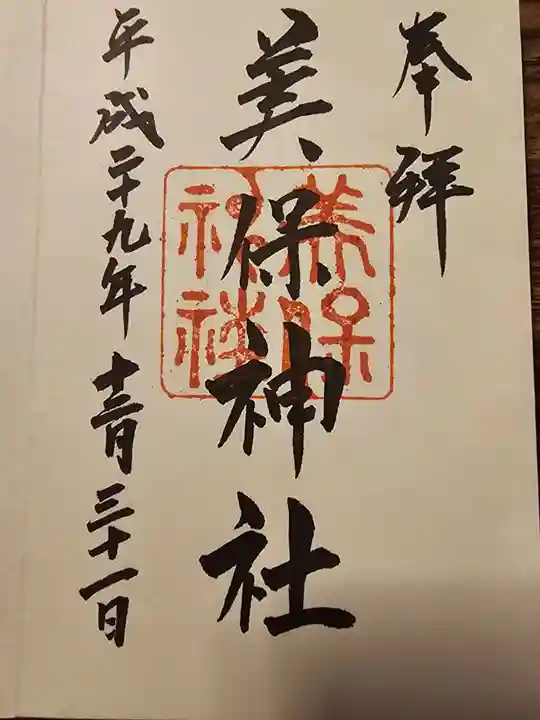 奉拝
美保神社
美保神社
平成二十九年十二月三十一日